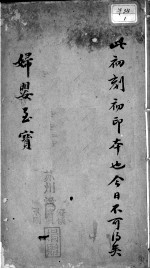 此初刻初印本也今日不可得矣
婦嬰至寳